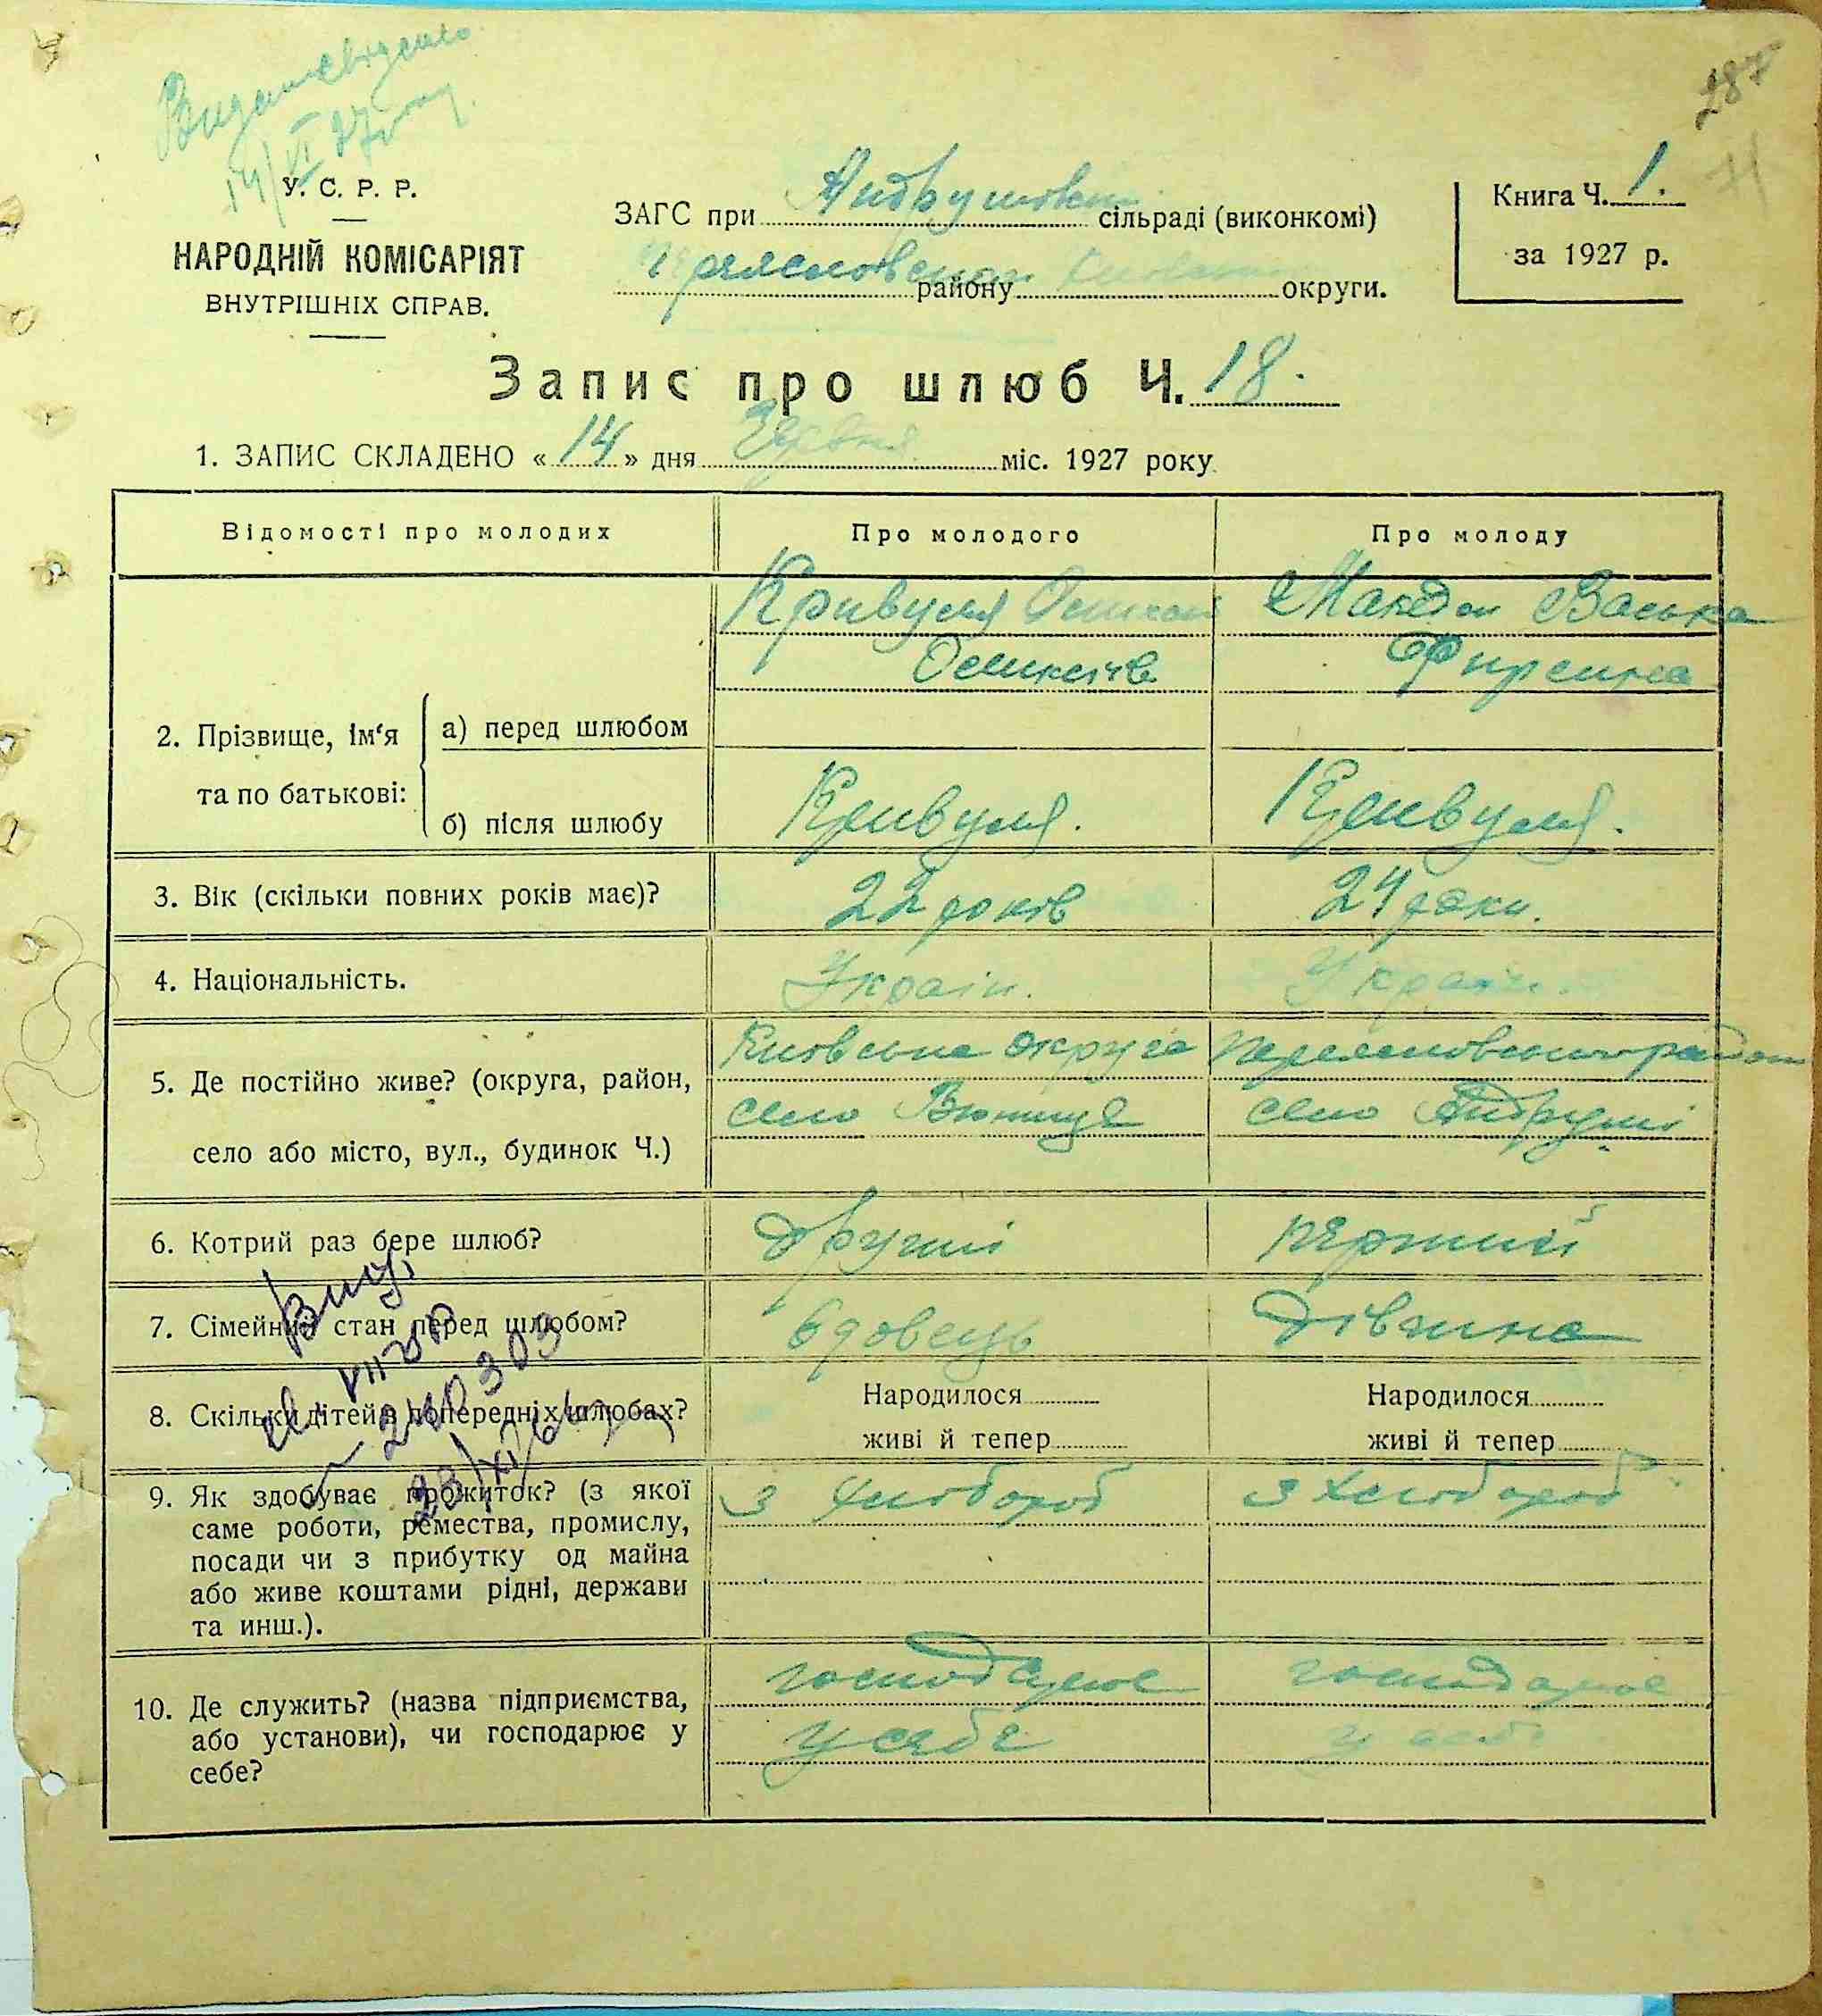 287
14/VI 27
У. С. Р. Р.
НАРОДНІЙ КОМІСАРІЯТ
ВНУТРІШНІХ СПРАВ.
ЗАГС при сільраді (виконкомі)
району округи.
Книга Ч. 1.
за 1927 р.
Запис про шлюб Ч. 18.
1. ЗАПИС СКЛАДЕНО « 14 » дня Червня міс. 1927 року
Відомості про молодих
Про молодого
Про молоду
2. Прізвище, ім'я
та по батькові:
а) перед шлюбом
Кривуля
Македон Васька
б) після шлюбу
Кривуля.
Кривуля.
3. Вік (скільки повних років має)?
22 років
24 роки.
4. Національність.
Україн.
Україн.
5. Де постійно живе? (округа, район,
село або місто, вул., будинок Ч.)
Київська округа
село Вюнище
село Андруші
6. Котрий раз бере шлюб?
другий
перший
7. Сімейний стан перед шлюбом?
вдовець
дівчина
8. Скільки дітей в попередніх шлюбах?
Народилося
живі й тепер
Народилося
живі й тепер
9. Як здобуває прожиток? (з якої
саме роботи, ремества, промислу,
посади чи з прибутку од майна
або живе коштами рідні, держави
та инш.).
з хлібороб
з хлібороб
10. Де служить? (назва підприємства,
або установи), чи господарює у
себе?
господарює
у себе
господарює
у себе